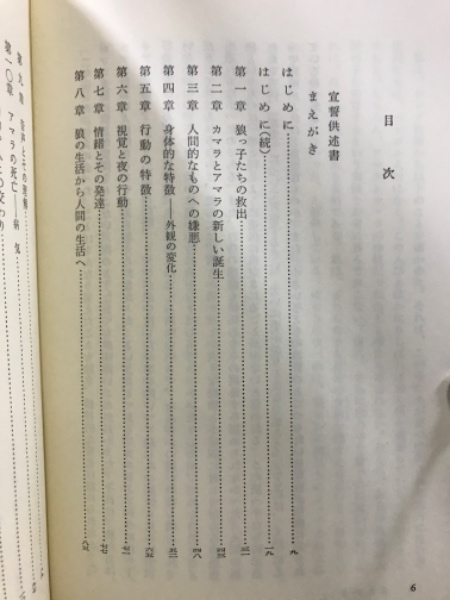 目次
宣誓供述書
まえがき
はじめに……九
はじめに(続)……一九
第一章 狼っ子たちの救出……三一
第二章 カマラとアマラの新しい誕生……四三
第三章 人間的なものへの嫌悪……四八
第四章 身体的な特徴——外観の変化……五三
第五章 行動の特徴……六五
第六章 視覚と夜の行動……七二
第七章 情緒とその発達……七七
第八章 狼の生活から人間の生活へ……八五
第九章 音声とその理解
第一〇章 アマラの死亡——病気
6